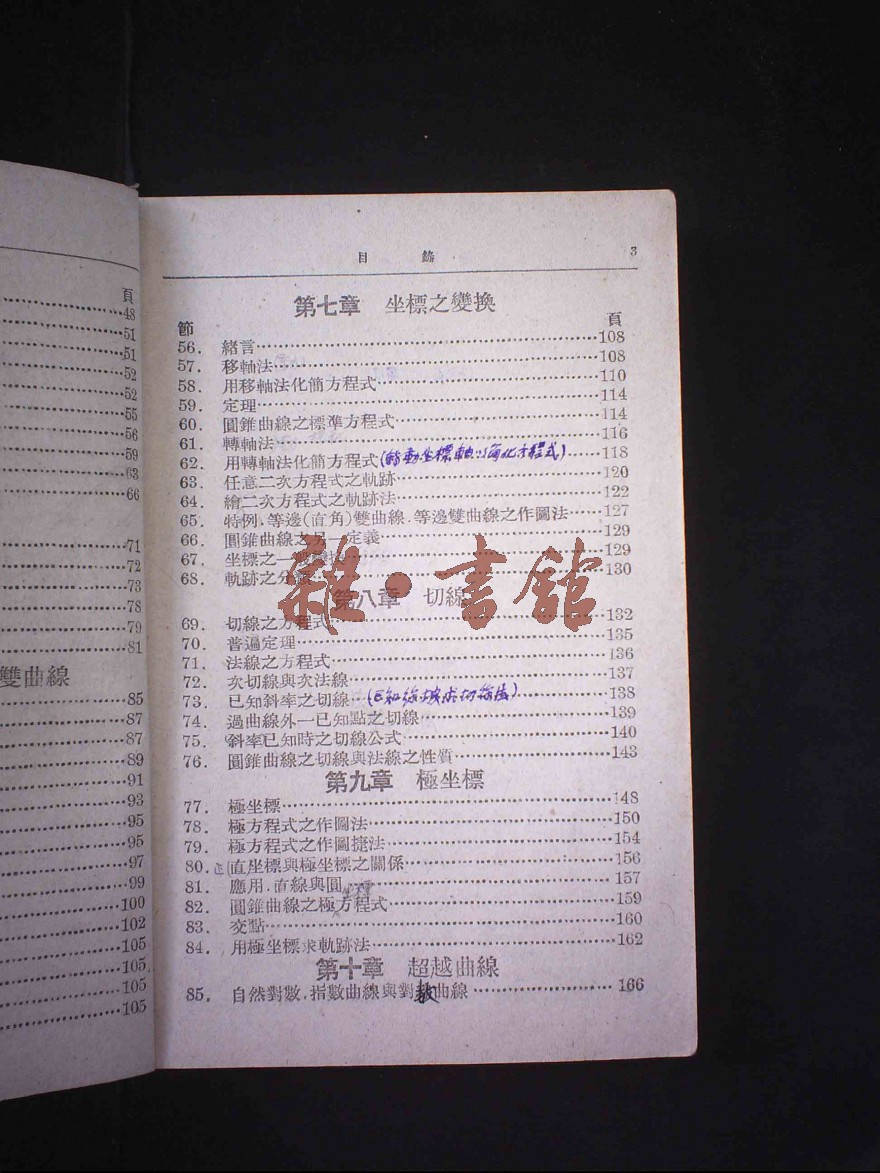 頁
48
51
51
52
52
55
56
59
63
66
71
72
73
78
79
81
雙曲線
85
87
87
89
91
93
95
95
97
99
100
102
105
105
105
目 錄 3
第七章 坐標之變換
節 頁
56. 緒言 108
57. 移軸法 108
58. 用移軸法化簡方程式 110
59. 定理 114
60. 圓錐曲線之標準方程式 114
61. 轉軸法 116
62. 用轉軸法化簡方程式(轉動坐標軸以簡化方程式) 118
63. 任意二次方程式之軌跡 120
64. 繪二次方程式之軌跡法 122
65. 特例.等邊(直角)雙曲線.等邊雙曲線之作圖法 127
66. 圓錐曲線之另一定義 129
67. 坐標之一 129
68. 軌跡之分 130
雜·書舘
第八章 切線
69. 切線之方程式 132
70. 普遍定理 135
71. 法線之方程式 136
72. 次切線與次法線 137
73. 已知斜率之切線 (已知 切線 138
74. 過曲線外一已知點之切線 139
75. 斜率已知時之切線公式 140
76. 圓錐曲線之切線與法線之性質 143
第九章 極坐標
77. 極坐標 148
78. 極方程式之作圖法 150
79. 極方程式之作圖捷法 154
80. 直坐標與極坐標之關係 156
81. 應用.直線與圓 157
82. 圓錐曲線之極方程式 159
83. 交點 160
84. 用極坐標求軌跡法 162
第十章 超越曲線
85. 自然對數.指數曲線與對數曲線 166